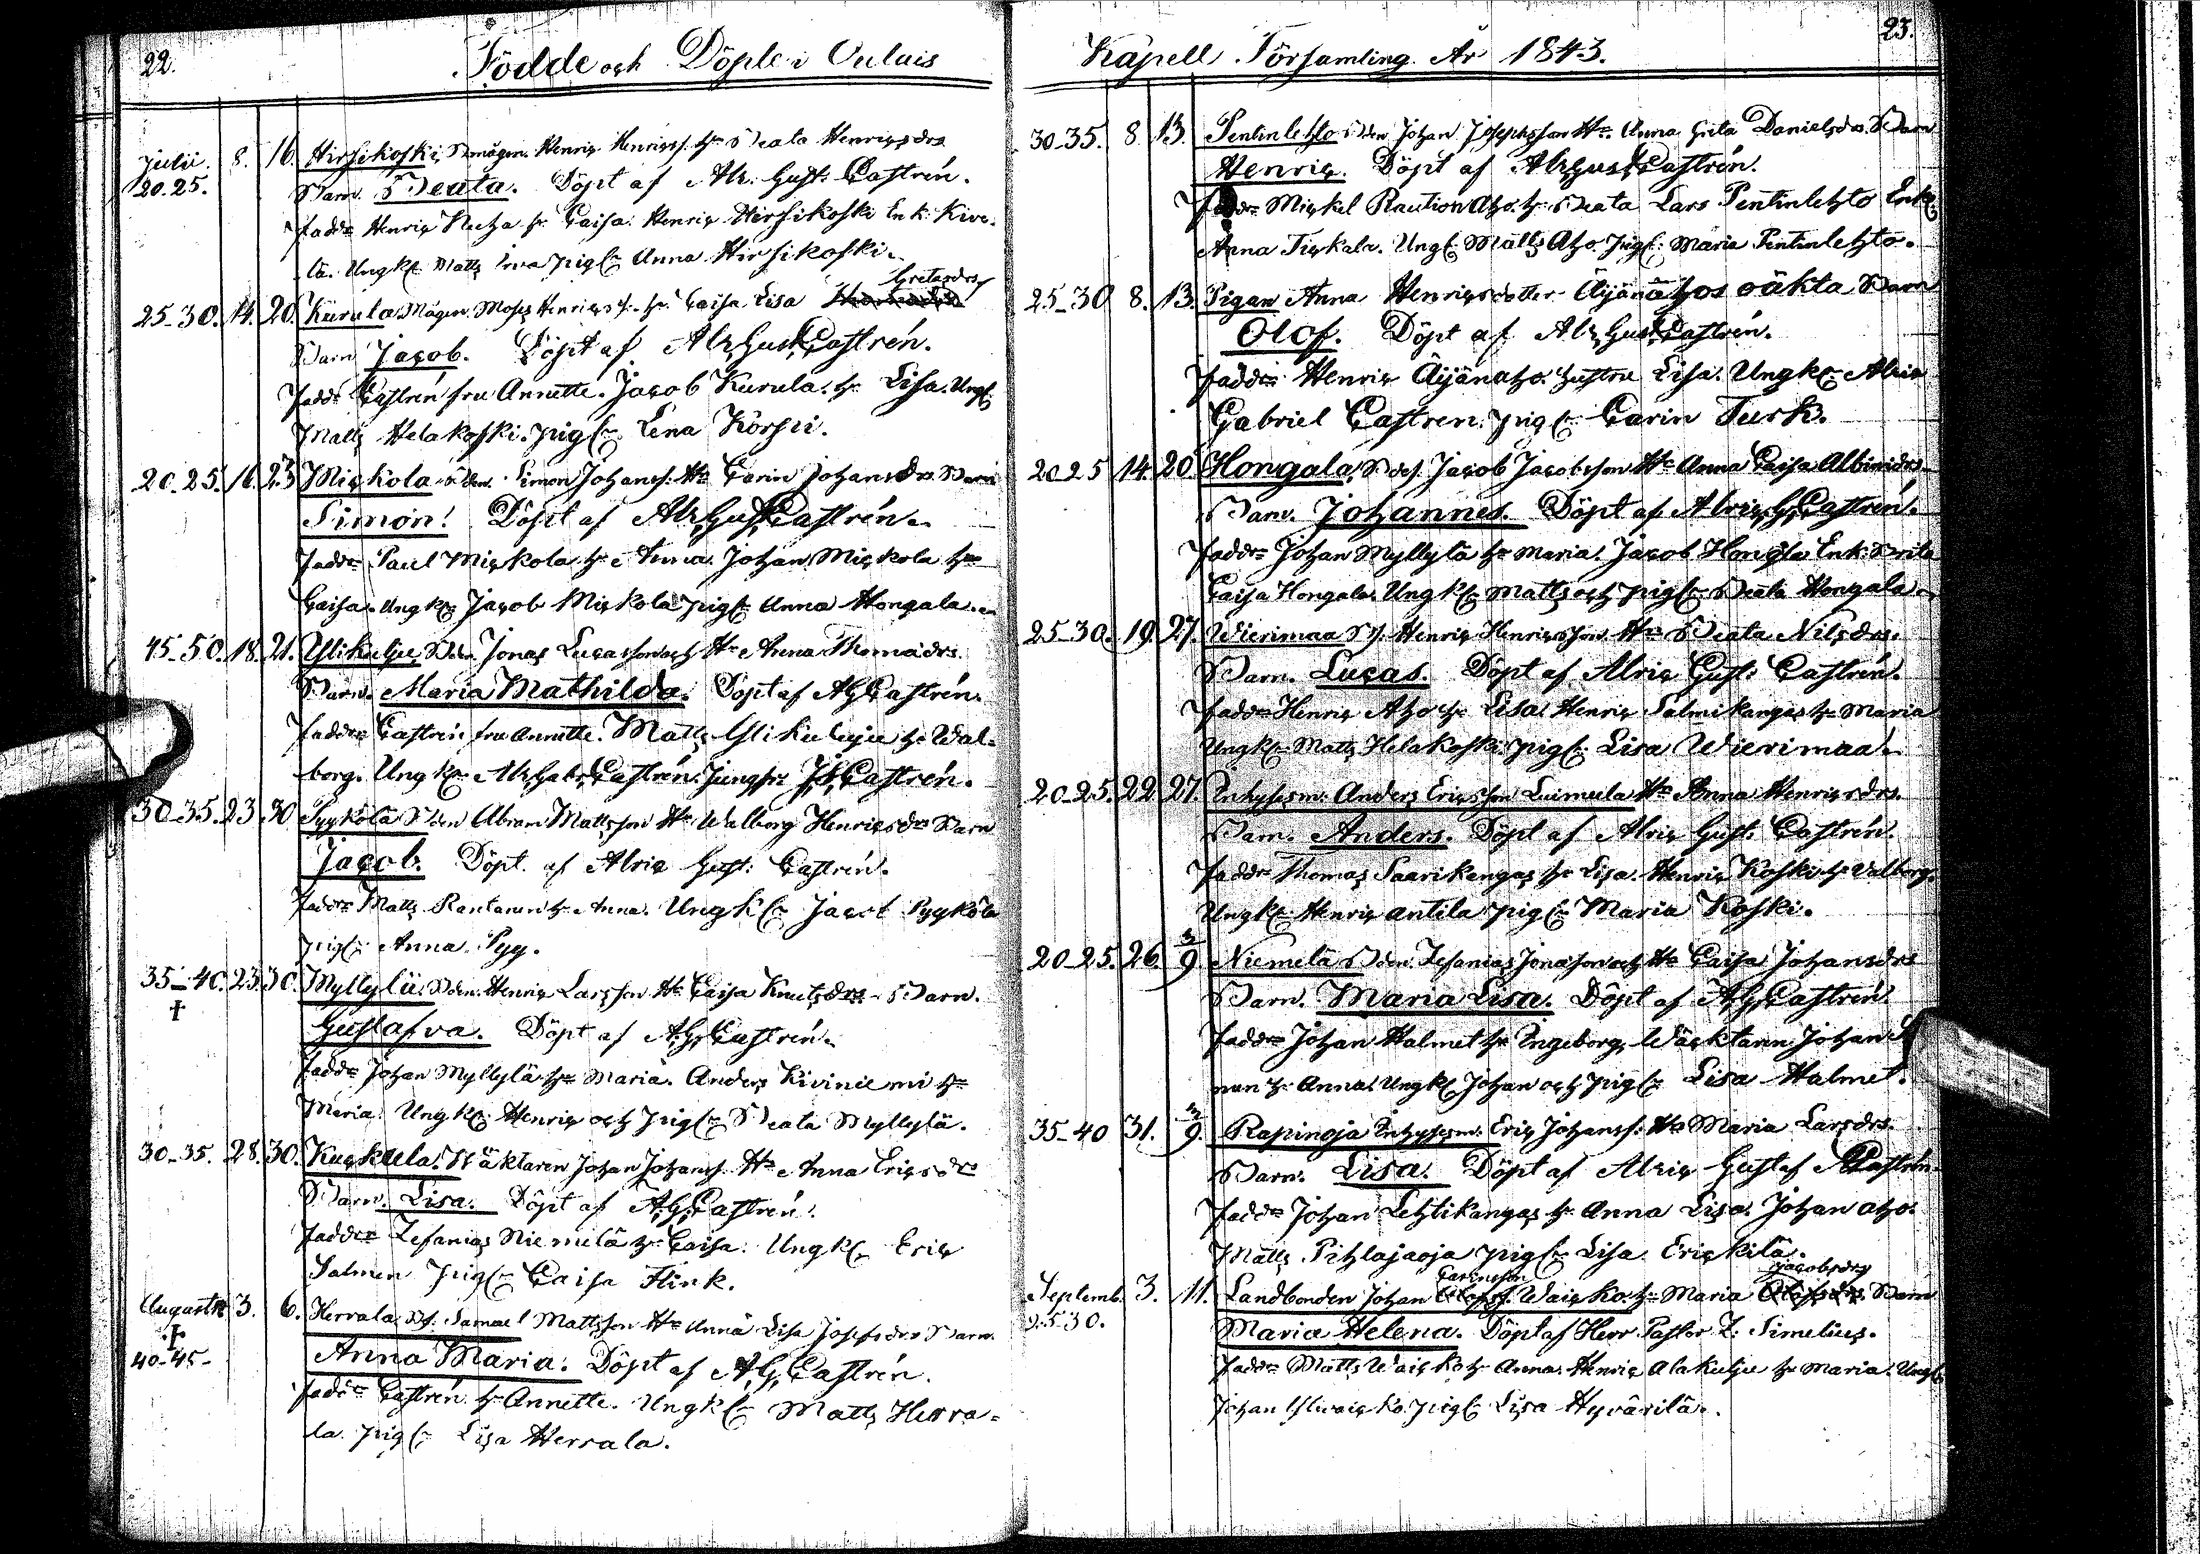 22.
Födde och Döpte i Oulais
Julii 8. 16. Hirsikoski, Bmågen Henric Henricss. Hu Beata Henricsdr
20.25. Barn Beata. Döpt af Alr. Gust: Castrén.
Faddr Henric Hu Caisa. Henric Hirsikoski Enk: Kive-
lä. Ungkn Matts pign Anna Hirsikoski.
Gretasdr
25-30. 14. 20. Kurula Mågen Moses Henricss. hu Caisa Lisa
Barn Jacob. Döpt af Alr Gust Castrén.
Faddr Castrén fru Annette. Jacob Kurula. hu Lisa. Ungk:
Matts Helakoski. pign Lena Körssi.
20-25. 16. 23 Mickola Bden. Simon Johanss. Hu Carin Johansdr Barn
Simon! Döpt af Alr Gust Castrén.
Faddr Paul Mickola hu Anna. Johan Mickola hu
Caisa. Ungkn Jacob Mickola pign Anna Hongala.
45-50. 18. 21. Ylikulju, Bden Jonas Lucasson och Hu Anna Thomadr.
Barn. Maria Mathilda. Döpt af A G Castrén.
Faddr Castrén fru Annette. Matts Ylikulju hu Wal-
borg. Ungkn Alr Gabr Castrén. Jungfr Castrén.
30-35. 23. 30 Pyykölä Bden Abram Mattsson Hu Walborg Henricsdr Barn
Jacob. Döpt af Alric Gust: Castrén.
Faddr Matts Rantanen hu Anna. Ungkn Jacob Pyykölä
pign Anna Pyy.
35-40. 23. 30. Myllylä. Bden Henric Larsson Hu Caisa Knutsdr - Barn.
† Gustafva. Döpt af A G Castrén.
Faddr Johan Myllylä hu Maria. Anders Kiviniemi hu
Maria. Ungkn Henric och pign Beata Myllylä.
30-35. 28. 30. Kuckula! Wäktaren Johan Johanss. Hu Anna Ericsdr
Barn. Lisa. Döpt af A G Castrén!
Faddr Zefanias Niemelä hu Caisa. Ungkn Eric
Salmen pign Caisa Flink.
Augusti 3. 6. Herrala Bf. Samuel Mattsson Hu Anna Lisa Josefsdr Barn.
†
40-45- Anna Maria. Döpt af A G Castrén.
Faddr Castrén hu Annette. Ungkn Matts Herra-
la. pign Lisa Herrala.
23.
Kapell Församling År 1843.
30-35. 8. 13. Pentinlehto Bden Johan Josephsson Hu Anna Greta Danielsdr. Barn
Henric. Döpt af Alr Gust Castrén.
Faddr Mickel Raution Aho hu Beata Lars Pentinlehto Enk:
Anna Tickala. Ungk: Matts Aho pign Maria Pentinlehto.
25-30 8. 13. Pigan Anna Henricsdotter Äijänähos oäkta Barn
Olof. Döpt af Alr Gust Castrén.
Faddr Henric Äijänaho hustru Lisa. Ungkn Alric
Gabriel Castren. pign Carin Tursk.
20-25 14. 20. Hongala, Bdes. Jacob Jacobsson Hu Anna Caisa Albinidr.
Barn. Johannes. Döpt af Alric G Castrén.
Faddr Johan Myllylä hu Maria. Jacob Hongla Enk: Brita
Caisa Hongala. Ungkn Matts och pign Beata Hongala.
25-30. 19. 27. Wierimaa Bf. Henric Henricsson Hu Beata Nilsdr.
Barn. Lucas. Döpt af Alric Gust: Castrén.
Faddr Henric Aho hu Lisa. Henric Salmikangas hu Maria
Ungkn Matts Helakoski pign Lisa Wierimaa.
20-25. 22. 27. Inhysesm: Anders Ericsson Luimula Hu Anna Henricsdr.
Barn. Anders. Döpt af Alric Gust: Castrén.
Faddr Thomas Saarikangas hu Lisa. Henric Koski hu Valborg.
Ungkn Henric Antila pign Maria Koski.
20-25. 26. 3/9 Niemelä Bden. Zefanias Jonasson och Hu Caisa Johansdr
Barn. Maria Lisa. Döpt af A G Castrén
Faddr Johan Halmet hu Ingeborg, Wäcktaren Johan
nen hu Anna. Ungkn Johan och pign Lisa Halmet.
35-40 31. 3/9. Rapinoja Inhysesm: Eric Johanss: Hu Maria Larsdr.
Barn. Lisa. Döpt af Alric Gustaf Castrén
Faddr Johan Lehtikangas hu Anna Lisa. Johan Aho.
Matts Pihlajaoja pign Lisa Erickilä.
Carinsson Jacobsdr
Septemb. 3. 11. Landbonden Johan Waicko hu Maria Barn
25.30. Maria Helena. Döpt af Herr Pastor Z. Simelius.
Faddr Matts Waicko hu Anna. Henric Alakulju hu Maria. Ungkn
Johan Yliwaicko. pign Lisa Hyvärilä.